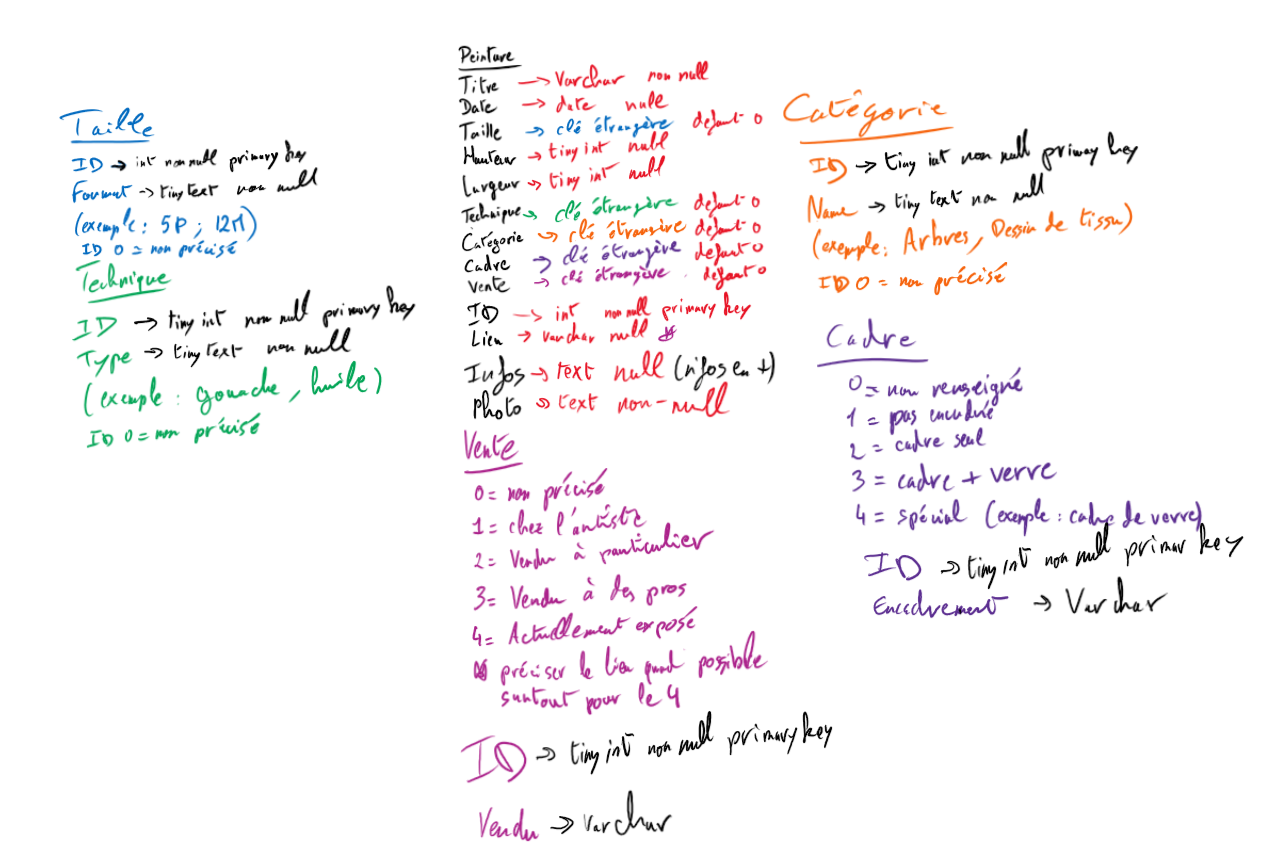 Taille
ID → int non null primary key
Format → tinytext non null
(exemple : 5P ; 12M)
ID 0 = non précisé
Technique
ID → tiny int non null primary key
Type → tinytext non null
(exemple : gouache, huile)
ID 0 = non précisé
Peinture
Titre → Varchar non null
Date → date null
Taille → clé étrangère défaut 0
Hauteur → tiny int null
Largeur → tiny int null
Technique → clé étrangère défaut 0
Catégorie → clé étrangère défaut 0
Cadre → clé étrangère défaut 0
Vente → clé étrangère défaut 0
ID → int non null primary key
Lieu → varchar null
Infos → text null (infos en +)
Photo → text non-null
Vente
0 = non précisé
1 = chez l'artiste
2 = Vendu à particulier
3 = Vendu à des pros
4 = Actuellement exposé
préciser le lieu quand possible
surtout pour le 4
ID → tiny int non null primary key
Vendu → varchar
Catégorie
ID → tiny int non null primary key
Name → tiny text non null
(exemple : Arbres, Dessin de tissu)
ID 0 = non précisé
Cadre
0 = non renseigné
1 = pas encadré
2 = cadre seul
3 = cadre + verre
4 = spécial (exemple : cadre de verre)
ID → tiny int non null primar key
Encadrement → Varchar